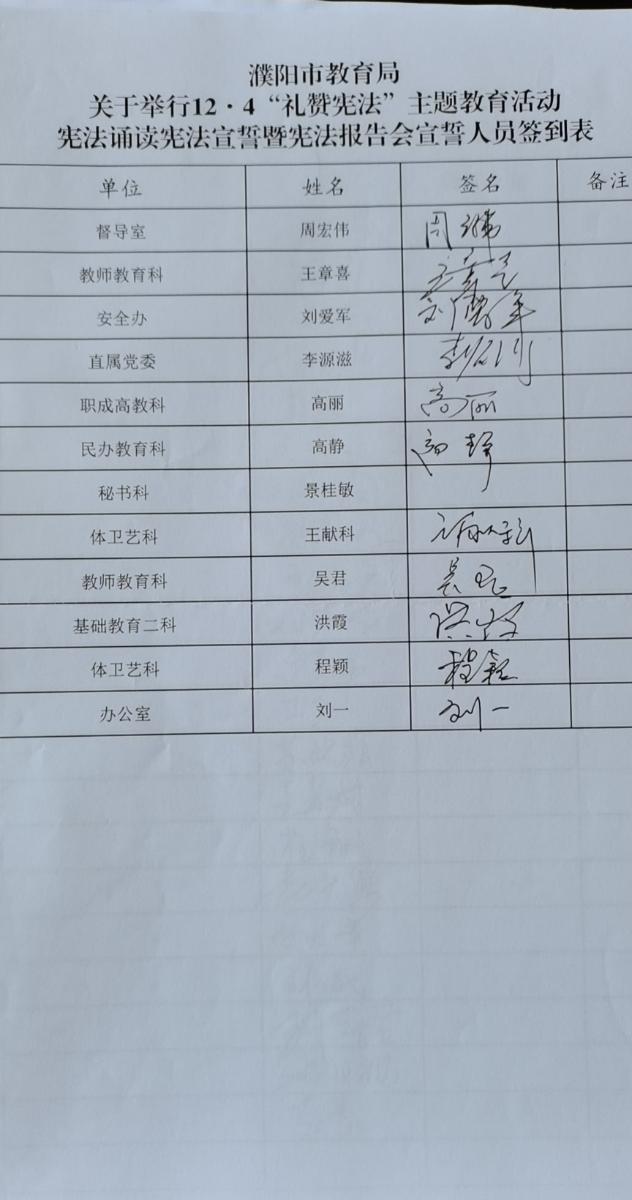 濮阳市教育局
关于举行12·4“礼赞宪法”主题教育活动
宪法诵读宪法宣誓暨宪法报告会宣誓人员签到表
单位 姓名 签名 备注
督导室 周宏伟 周
教师教育科 王章喜
安全办 刘爱军
直属党委 李源滋
职成高教科 高丽 高丽
民办教育科 高静 高静
秘书科 景桂敏
体卫艺科 王献科
教师教育科 吴君 吴君
基础教育二科 洪霞 洪霞
体卫艺科 程颖 程颖
办公室 刘一 刘一